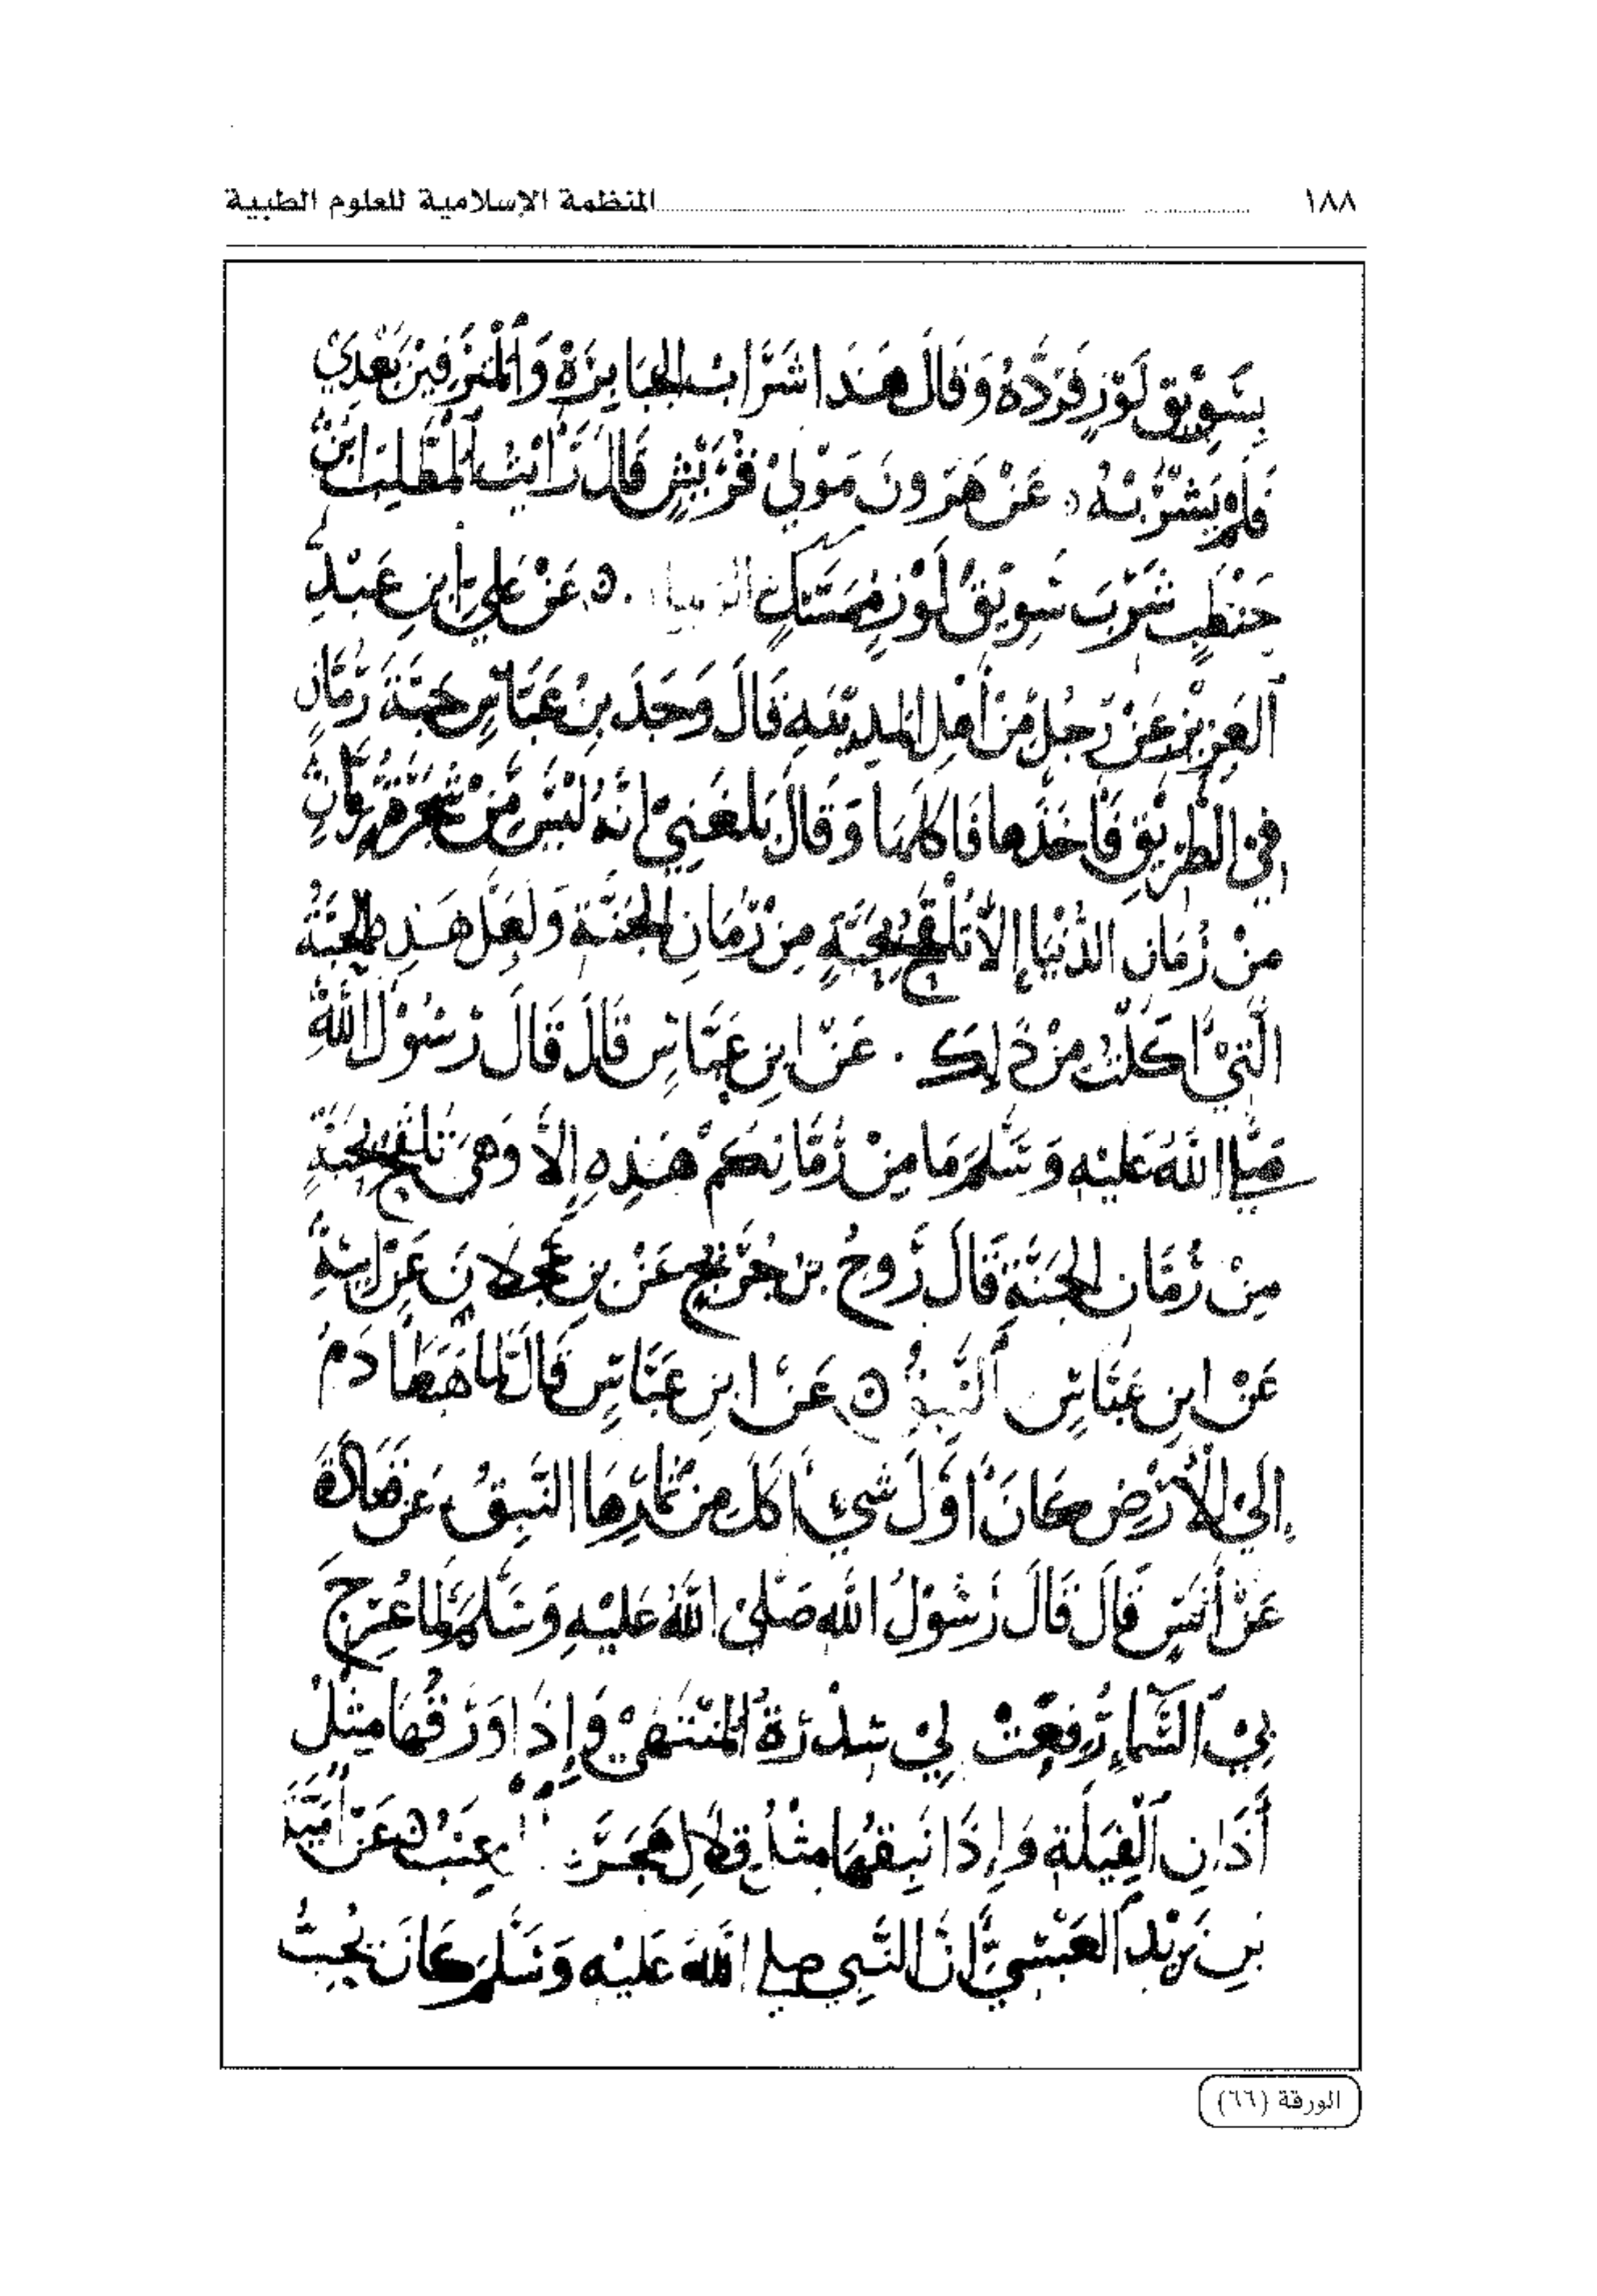 ١٨٨ المنظمة الإسلامية للعلوم الطبية
بِسَوِيقِ لَوْزٍ فَرَدَّهُ وَقَالَ هَذَا شَرَابُ الجَبَابِرَةْ وَالْمُتْرَفِينَ بَعْدِي
فَلَمْ يَشْرَبْهُ عَنْ هَرُونَ مَوْلَىْ قُرَيْشٍ قَالَ رَأَيْتُ الْمُطَّلِبَ ابْنَ
حَنْطَبٍ شَرِبَ سَوِيْقَ لَوْزٍ مُمَسَّكٍ عَنْ عَلِيِّ ابْنِ عَبْدِ
الْعَزِيْزِ عَنْ رَجُلٍ مِنْ أَهْلِ الْمَدِيْنَةِ قَالَ وَجَدَ بْنُ عَبَّاسٍ حَبَّةَ رُمَّانٍ
فِي الطَّرِيْقِ فَأَخَذَهَا فَأَكَلَهَا وَقَالَ بَلَغَنِيْ أَنَّهُ لَيْسَ مِنْ شَجَرَةِ رُمَّانٍ
مِنْ رُمَانِ الدُّنْيَا إِلَّا تُلْقَحُ بِحَبَّةٍ مِنْ رُمَّانِ الْجَنَّةِ وَلَعَلَّ هَذِهِ الْحَبَّةُ
الَّتِيْ أَكَلْتُ مِنْ ذَلِكَ . عَنْ ابْنِ عَبَّاسٍ قَالَ قَالَ رَسُوْلُ اللَّهِ
صَلَّى اللَّهُ عَلَيْهِ وَسَلَّمَ مَا مِنْ رُمَّانِكُمْ هَذِهِ إِلَّا وَهِيَ تُلَقَّحُ بِحَبَّةٍ
مِنْ رُمَّانِ الْجَنَّةِ قَالَ رَوحُ بْنُ جُرَيْجٍ عَنْ بْنِ عَجْلَانَ عَنْ أَبِيْهِ
عَنْ ابْنِ عَبَّاسٍ النَّبِقُ عَنْ ابْنِ عَبَّاسٍ قَالَ لَمَّا هَبَطَ آدَمُ
إِلَى الْأَرْضِ كَانَ أَوَّلَ شَيْءٍ أَكَلَ مِنْ ثِمَارِهَا النَّبِقُ عَنْ قَتَادَةَ
عَنْ أَنَسٍ قَالَ قَالَ رَسُوْلُ اللَّهِ صَلَّىْ اللَّهُ عَلَيْهِ وَسَلَّمَ لَمَّا عُرِجَ
بِيْ السَّمَاءِ رُفِعَتْ لِيْ سِدْرَةُ الْمُنْتَهَىْ وَإِذَا وَرَقُهَا مِثْلُ
أَذَانِ الْفِيَلَةِ وَإِذَا نَبِقُهَا مِثْلُ قِلَالِ هَجَرَ عَنْ أُمَيَّةَ
بْنِ يَزِيْدَ الْعَبْسِيِّ أَنَّ النَّبِي صلى اللَّهُ عَلَيْهِ وَسَلَّمَ كَانَ يُحِبُّ
الورقة (٦٦)